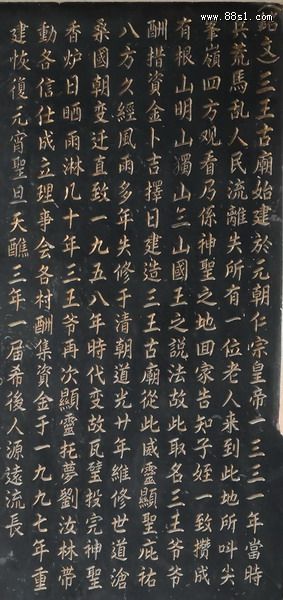 www.88sl.com
(铭文)三王古廟始建於元朝仁宗皇帝一三三一年當時
荒馬乱人民流離失所有一位老人来到此地所叫尖
峯嶺四方观看乃係神聖之地回家告知子姪一致攒成
有根山明山獨山三山國王之説法故此取名三王爷爷
酬措資金卜吉擇日建造三王古廟從此威靈顯聖庇祐
八方久經風雨多年失修于清朝道光廿年維修世道滄
桑國朝变迁直致一九五八年時代变故瓦璧投完神聖
香炉日晒雨淋几十年三王爷再次顯靈托夢劉汝林带
動各信仕成立理事会各村酬集資金于一九九七年重
建恢復元宵聖旦天醮三年一届希後人源遠流長